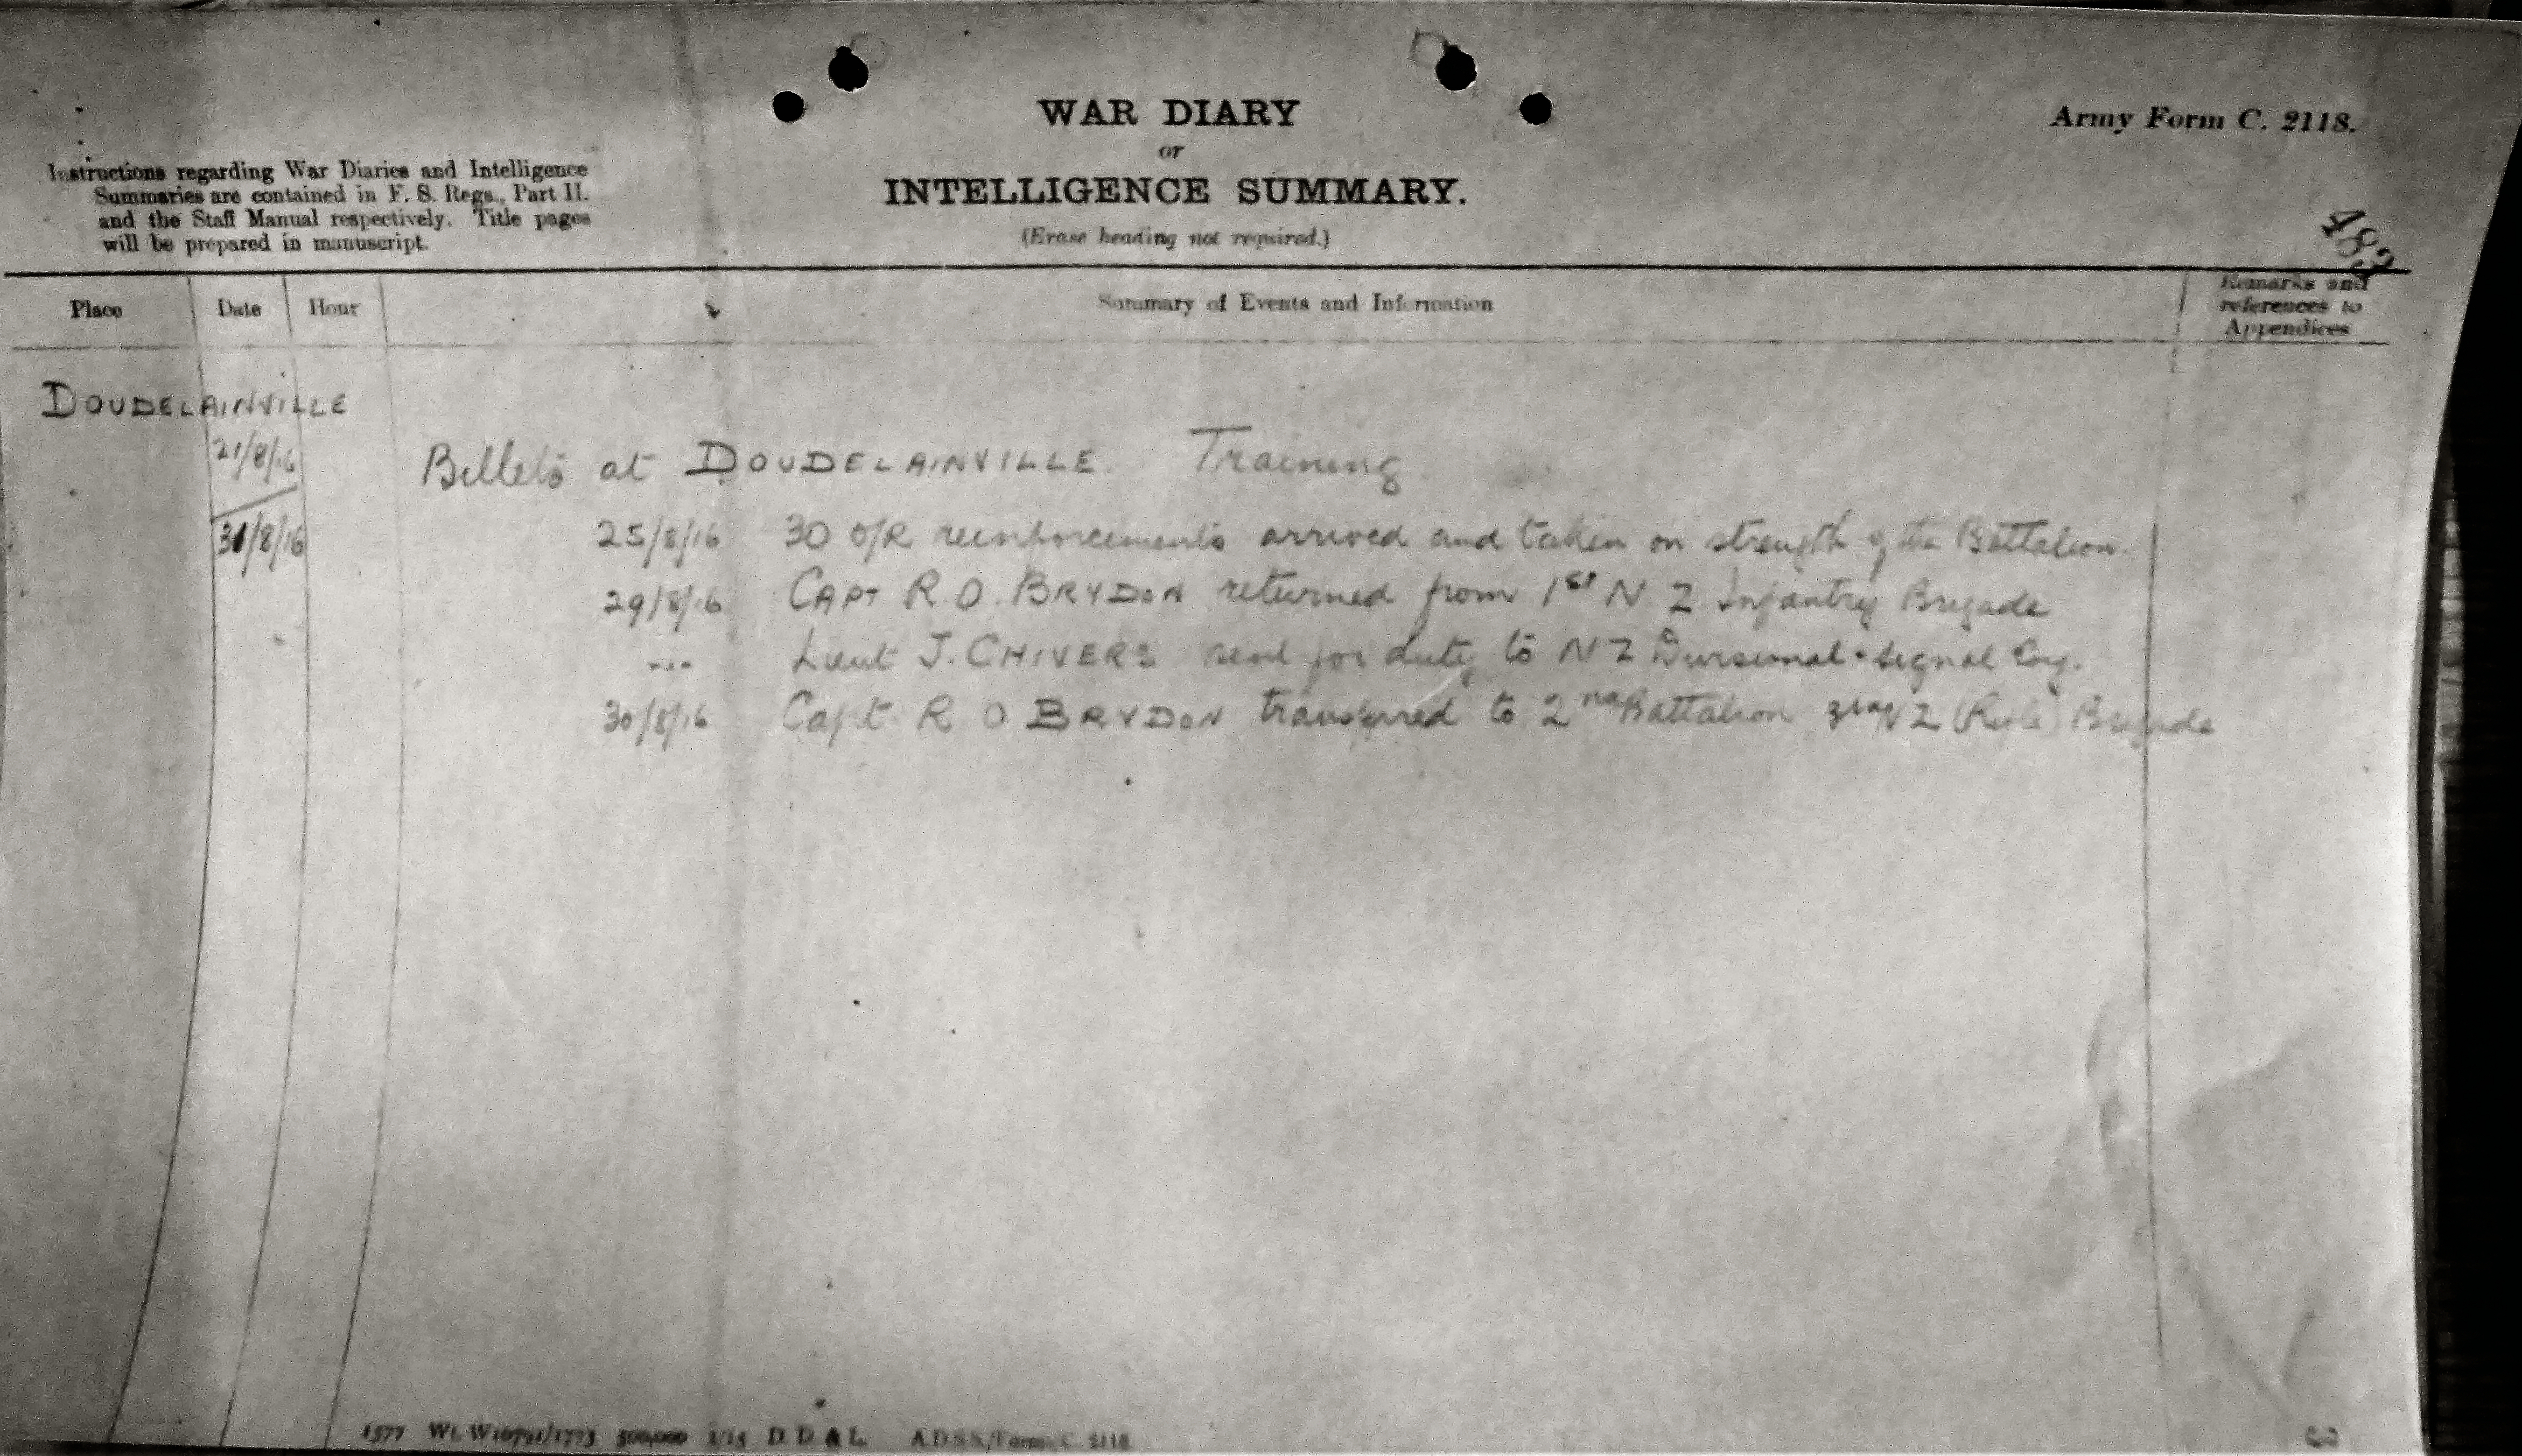 WAR DIARY
or
INTELLIGENCE SUMMARY.
(Erase heading not required.)
Army Form C. 2118.
Instructions regarding War Diaries and Intelligence
Summaries are contained in F. S. Regs., Part II.
and the Staff Manual respectively. Title pages
will be prepared in manuscript.
483
Place Date Hour Summary of Events and Information Remarks and
references to
Appendices
DOUDELAINVILLE
21/8/16 Billets at DOUDELAINVILLE. Training
31/8/16 25/8/16 30 O/R reinforcements arrived and taken on strength of the Battalion.
29/8/16 CAPT R.O. BRYDON returned from 1st N Z Infantry Brigade
Lieut J. CHIVERS sent for duty to N Z Divisional Signal Coy.
30/8/16 Capt R O BRYDON transferred to 2nd Battalion 3rd N Z (Rifle) Brigade
1577 Wt. 500,000 1/15 D. D. & L. A.D.S.S./Forms/C. 2118.